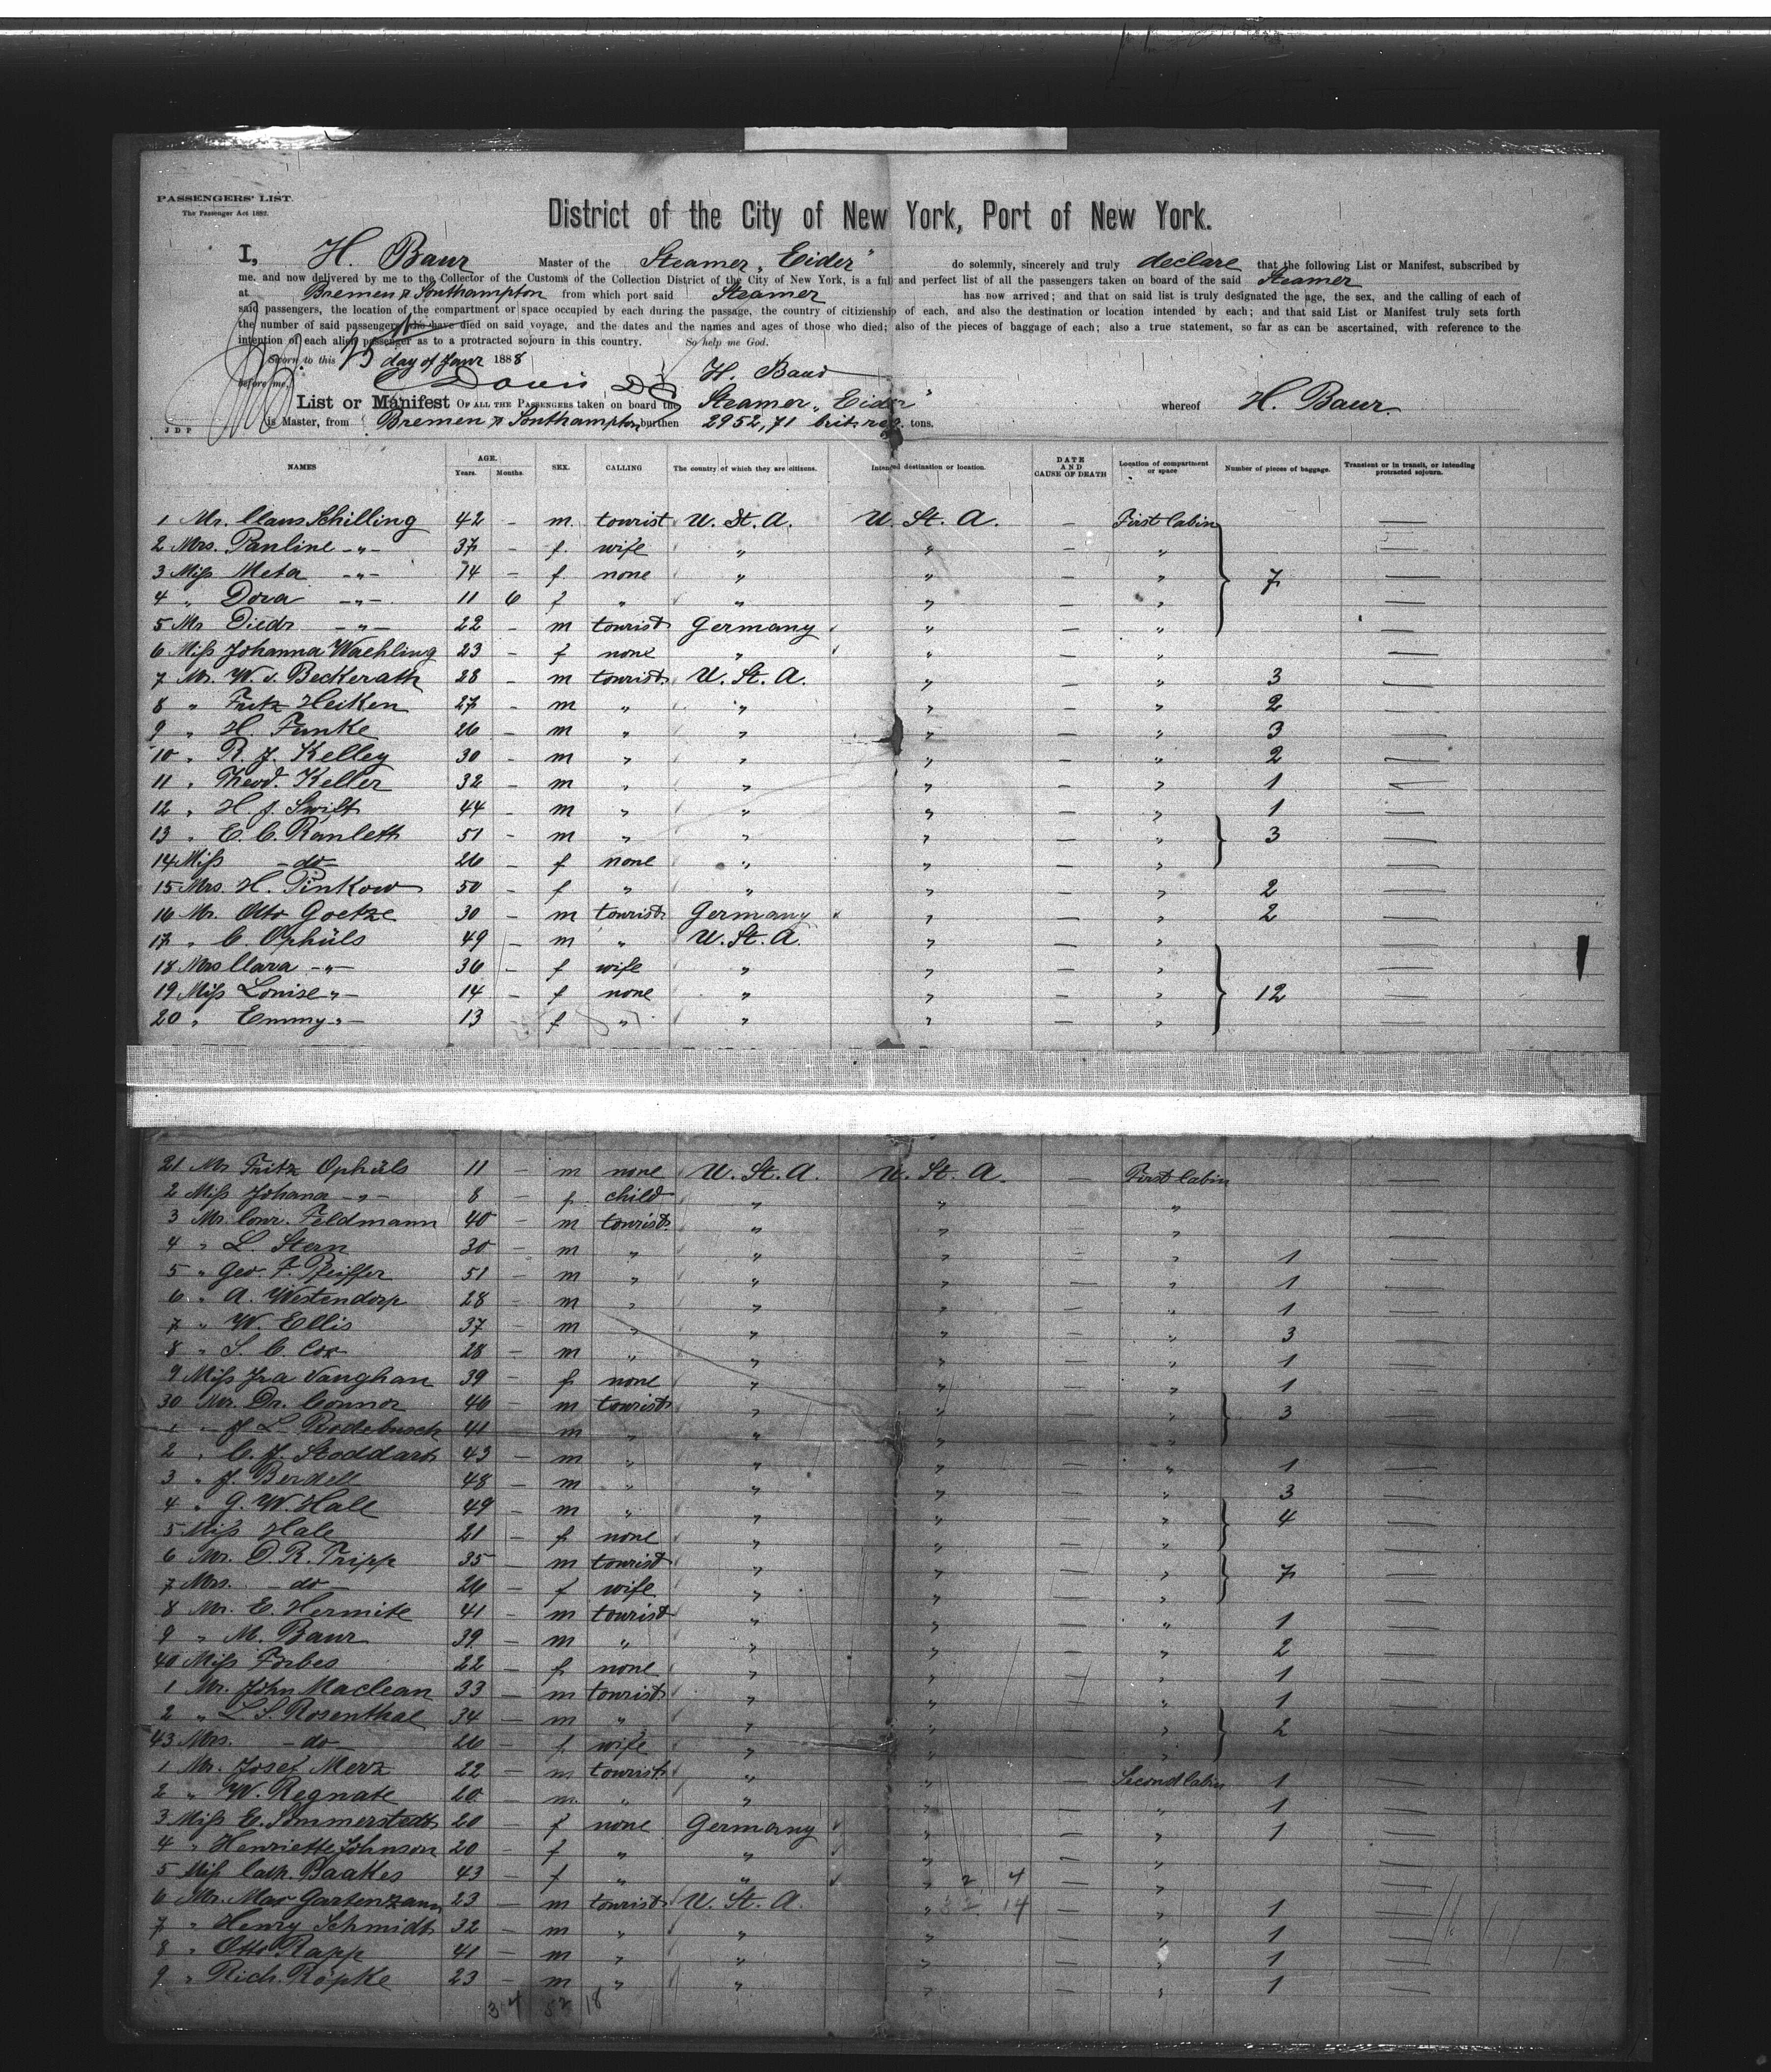 PASSENGERS' LIST.
The Passenger Act 1882.
District of the City of New York, Port of New York.
I, H. Baur Master of the Steamer „Eider" do solemnly, sincerely and truly declare that the following List or Manifest, subscribed by
me, and now delivered by me to the Collector of the Customs of the Collection District of the City of New York, is a full and perfect list of all the passengers taken on board of the said Steamer
at Bremen & Southampton from which port said Steamer has now arrived; and that on said list is truly designated the age, the sex, and the calling of each of
said passengers, the location of the compartment or space occupied by each during the passage, the country of citizienship of each, and also the destination or location intended by each; and that said List or Manifest truly sets forth
the number of said passengers who have died on said voyage, and the dates and the names and ages of those who died; also of the pieces of baggage of each; also a true statement, so far as can be ascertained, with reference to the
intention of each alien passenger as to a protracted sojourn in this country. So help me God.
Sworn to this day of Janr 1888
before me, H. Baur
List or Manifest OF ALL THE PASSENGERS taken on board the Steamer „Eider" whereof H. Baur
J D P is Master, from Bremen & Southampton, burthen 2952,71 brit. reg. tons.
NAMES AGE. Years. Months. SEX. CALLING The country of which they are citizens. Intended destination or location. DATE AND CAUSE OF DEATH Location of compartment or space Number of pieces of baggage. Transient or in transit, or intending protracted sojourn.
1 Mr. Claus Schilling 42 - m. tourist U. St. A. U. St. A. — First Cabin —
2 Mrs. Pauline -„- 37 - f. wife „ „ — „ —
3 Miss Meta -„- 14 - f none „ „ — „ 7 —
4 „ Dora -„- 11 6 f „ „ „ — „ —
5 Mr Diedr -„- 22 - m tourist Germany „ — „ —
6 Miss Johanna Waehling 23 - f none „ „ — „ —
7 Mr. W. v. Beckerath 28 - m tourist U. St. A. „ — „ 3 —
8 „ Fritz Heiken 27 - m „ „ „ — „ 2 —
9 „ H. Funke 26 - m „ „ „ — „ 3 —
10 „ R. J. Kelley 30 - m „ „ „ — „ 2 —
11 „ Theod. Keller 32 - m „ „ „ — „ 1 —
12 „ H. J. Swift 44 - m „ „ „ — „ 1 —
13 „ E. C. Ranleth 51 - m „ „ „ — „ 3 —
14 Miss -do- 26 - f none „ „ — „ —
15 Mrs. H. Pinkow 50 - f „ „ „ — „ 2 —
16 Mr. Otto Goetze 30 - m tourist Germany „ — „ 2 —
17 „ C. Ophüls 49 - m „ U. St. A. „ — „ —
18 Mrs Clara -„- 36 - f wife „ „ — „ —
19 Miss Louise -„- 14 - f none „ „ — „ 12 —
20 „ Emmy -„- 13 f „ „ „ — „ —
21 Mr Fritz Ophüls 11 - m none U. St. A. U. St. A. — First Cabin —
2 Miss Johana -„- 8 - f. child „ „ „ —
3 Mr. Conr. Feldmann 40 - m tourist „ „ „ —
4 „ L. Stern 30 - m „ „ „ - „ 1 —
5 „ Geo. F. Pfeiffer 51 - m „ „ „ — „ 1 —
6 „ A. Westendorp 28 - m „ „ „ — „ 1 —
7 „ W. Ellis 37 - m „ „ „ — „ 3 —
8 „ S. C. Cox 28 - m „ „ „ — „ 1 —
9 Miss Ira Vanghan 39 - f none „ „ — „ 1 —
30 Mr. Dr. Connor 46 - m tourist „ „ — „ 3 —
1 „ J. L. Rodebusch 41 - m „ „ „ — „ —
2 „ C. J. Stoddart 43 - m „ „ „ — „ 1 —
3 „ J. Berdell 48 - m „ „ „ — „ 3 —
4 „ G. W. Hale 49 - m „ „ „ — „ 4 —
5 Miss Hale 21 - f none „ „ — „ —
6 Mr. D. R. Tripp 35 - m tourist „ „ — „ 7 —
7 Mrs. -do- 26 - f wife „ „ — „ —
8 Mr. E. Hermite 41 - m tourist „ „ — „ 1 —
9 „ M. Baur 39 - m „ „ „ — „ 2 —
40 Miss Forbes 22 - f none „ „ — „ 1 —
1 Mr. John Maclean 33 - m tourist „ „ — „ 1 —
2 „ L. S. Rosenthal 34 - m „ „ „ — „ 2 —
43 Mrs. -do- 26 - f. wife „ „ — „ —
1 Mr. Josef Merz 22 - m tourist „ „ — Second Cabin 1 —
2 „ W. Regnate 20 - m. „ „ „ — „ 1 —
3 Miss E. Sommerstedt 20 - f none Germany „ — „ 1 —
4 „ Henriette Johnson 20 - f „ „ „ — „ —
5 Miss Cath. Baakes 43 - f „ „ „ 2 4 — „ —
6 Mr. Max Gartenzaun 23 - m tourist U. St. A. „ 32 14 — „ 1 —
7 „ Henry Schmidt 32 - m „ „ „ — „ 1 —
8 „ Otto Rapp 41 - m „ „ „ — „ 1 —
9 „ Rich. Röpke 23 - m „ „ „ — „ 1 —
34 52 18